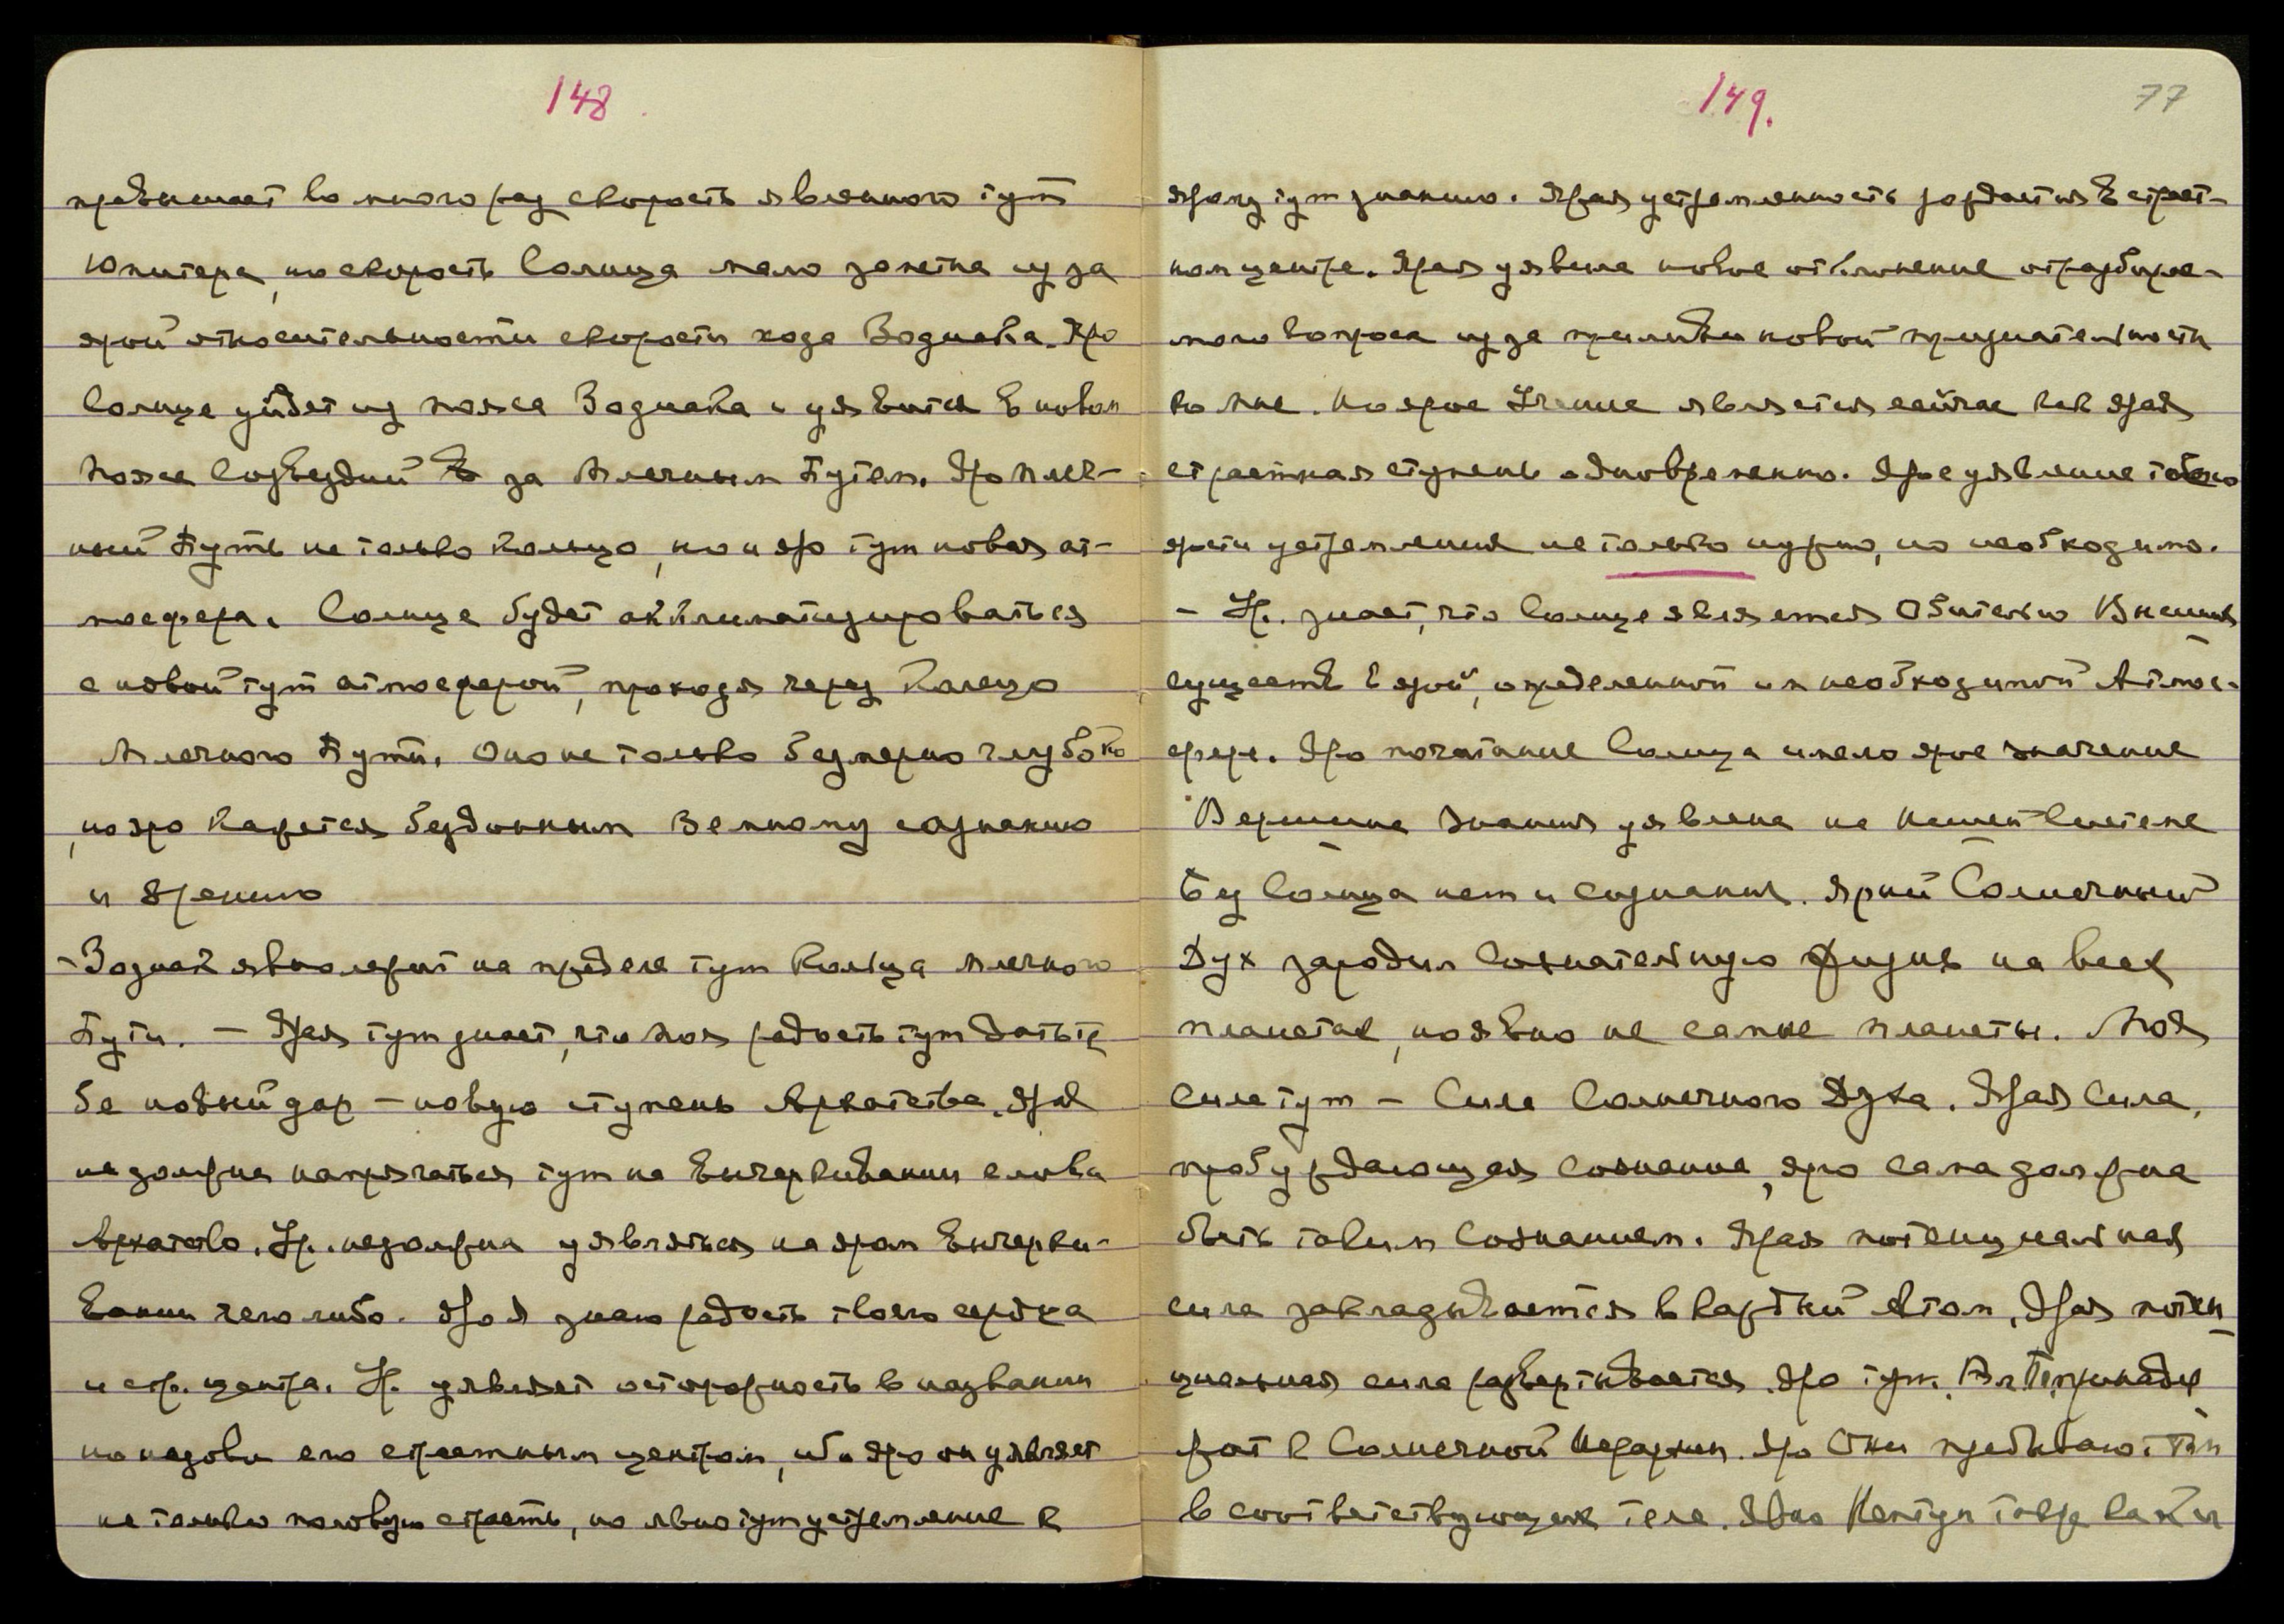 148.
превышает во много раз скорость явленного тут
Юпитера, но скорость Солнца мало заметна из за
ярой относительности скорости хода Зодиака. Яро
Солнце уйдет из пояса Зодиака и уявится в новом
поясе Созвездий за Млечным Путем. Яро Млеч-
ный Путь не только Кольцо, но и яро тут новая ат-
мосфера. Солнце будет акклиматизироваться
с новой тут атмосферой, проходя через Кольцо
Млечного Пути. Оно не только безмерно глубоко
, но яро кажется бездонным Земному сознанию
и зрению
- Зодиак явно лежит на пределе тут Кольца Млечного
Пути. — Ярая тут знает, что Моя радость тут дать те-
бе новый дар — новую ступень Архатства. Ярая
не должна напрягаться тут на вычеркивании слова
Архатство. Ур. не должна уявляться на яром вычерки-
вании чего либо. Яро Я знаю радость твоего сердца
и стр. центра. Ур. уявляет осторожность в назывании
но назови его страстным центром, ибо яро он уявляет
не только половую страсть, но явно тут устремление к
149.
77
ярому тут знанию. Ярая устремленность рождается в страст-
ном центре. Ярая уявила новое отклонение от разбирае-
мого вопроса из за приливы новой признательности
ко Мне. Но ярое Учение является сейчас как ярая
страстная ступень одновременно. Ярое уявление такого
ярости устремления не только нужно, но необходимо.
- Ур. знает, что Солнце является Обителью Высших
существ в ярой, определенной им необходимой Атмос-
фере. Яро почитание Солнца имело ярое значение
Вершина Знания уявлена на нашей Системе
Без Солнца нет и сознания. Ярый Солнечный
Дух зародил Сознательную Жизнь на всех
планетах, но явно не самые планеты. Моя
Сила тут — Сила Солнечного Духа. Ярая Сила,
пробуждающая сознание, яро сама должна
быть таким Сознанием. Ярая потенциальная
сила закладывается в каждый Атом. Ярая потен
циальная сила развертывается. Яро тут Вл. принадле
жат к Солнечной Иерархии. Яро Они пребывают там
в соответствующем теле. Явно Нептун также